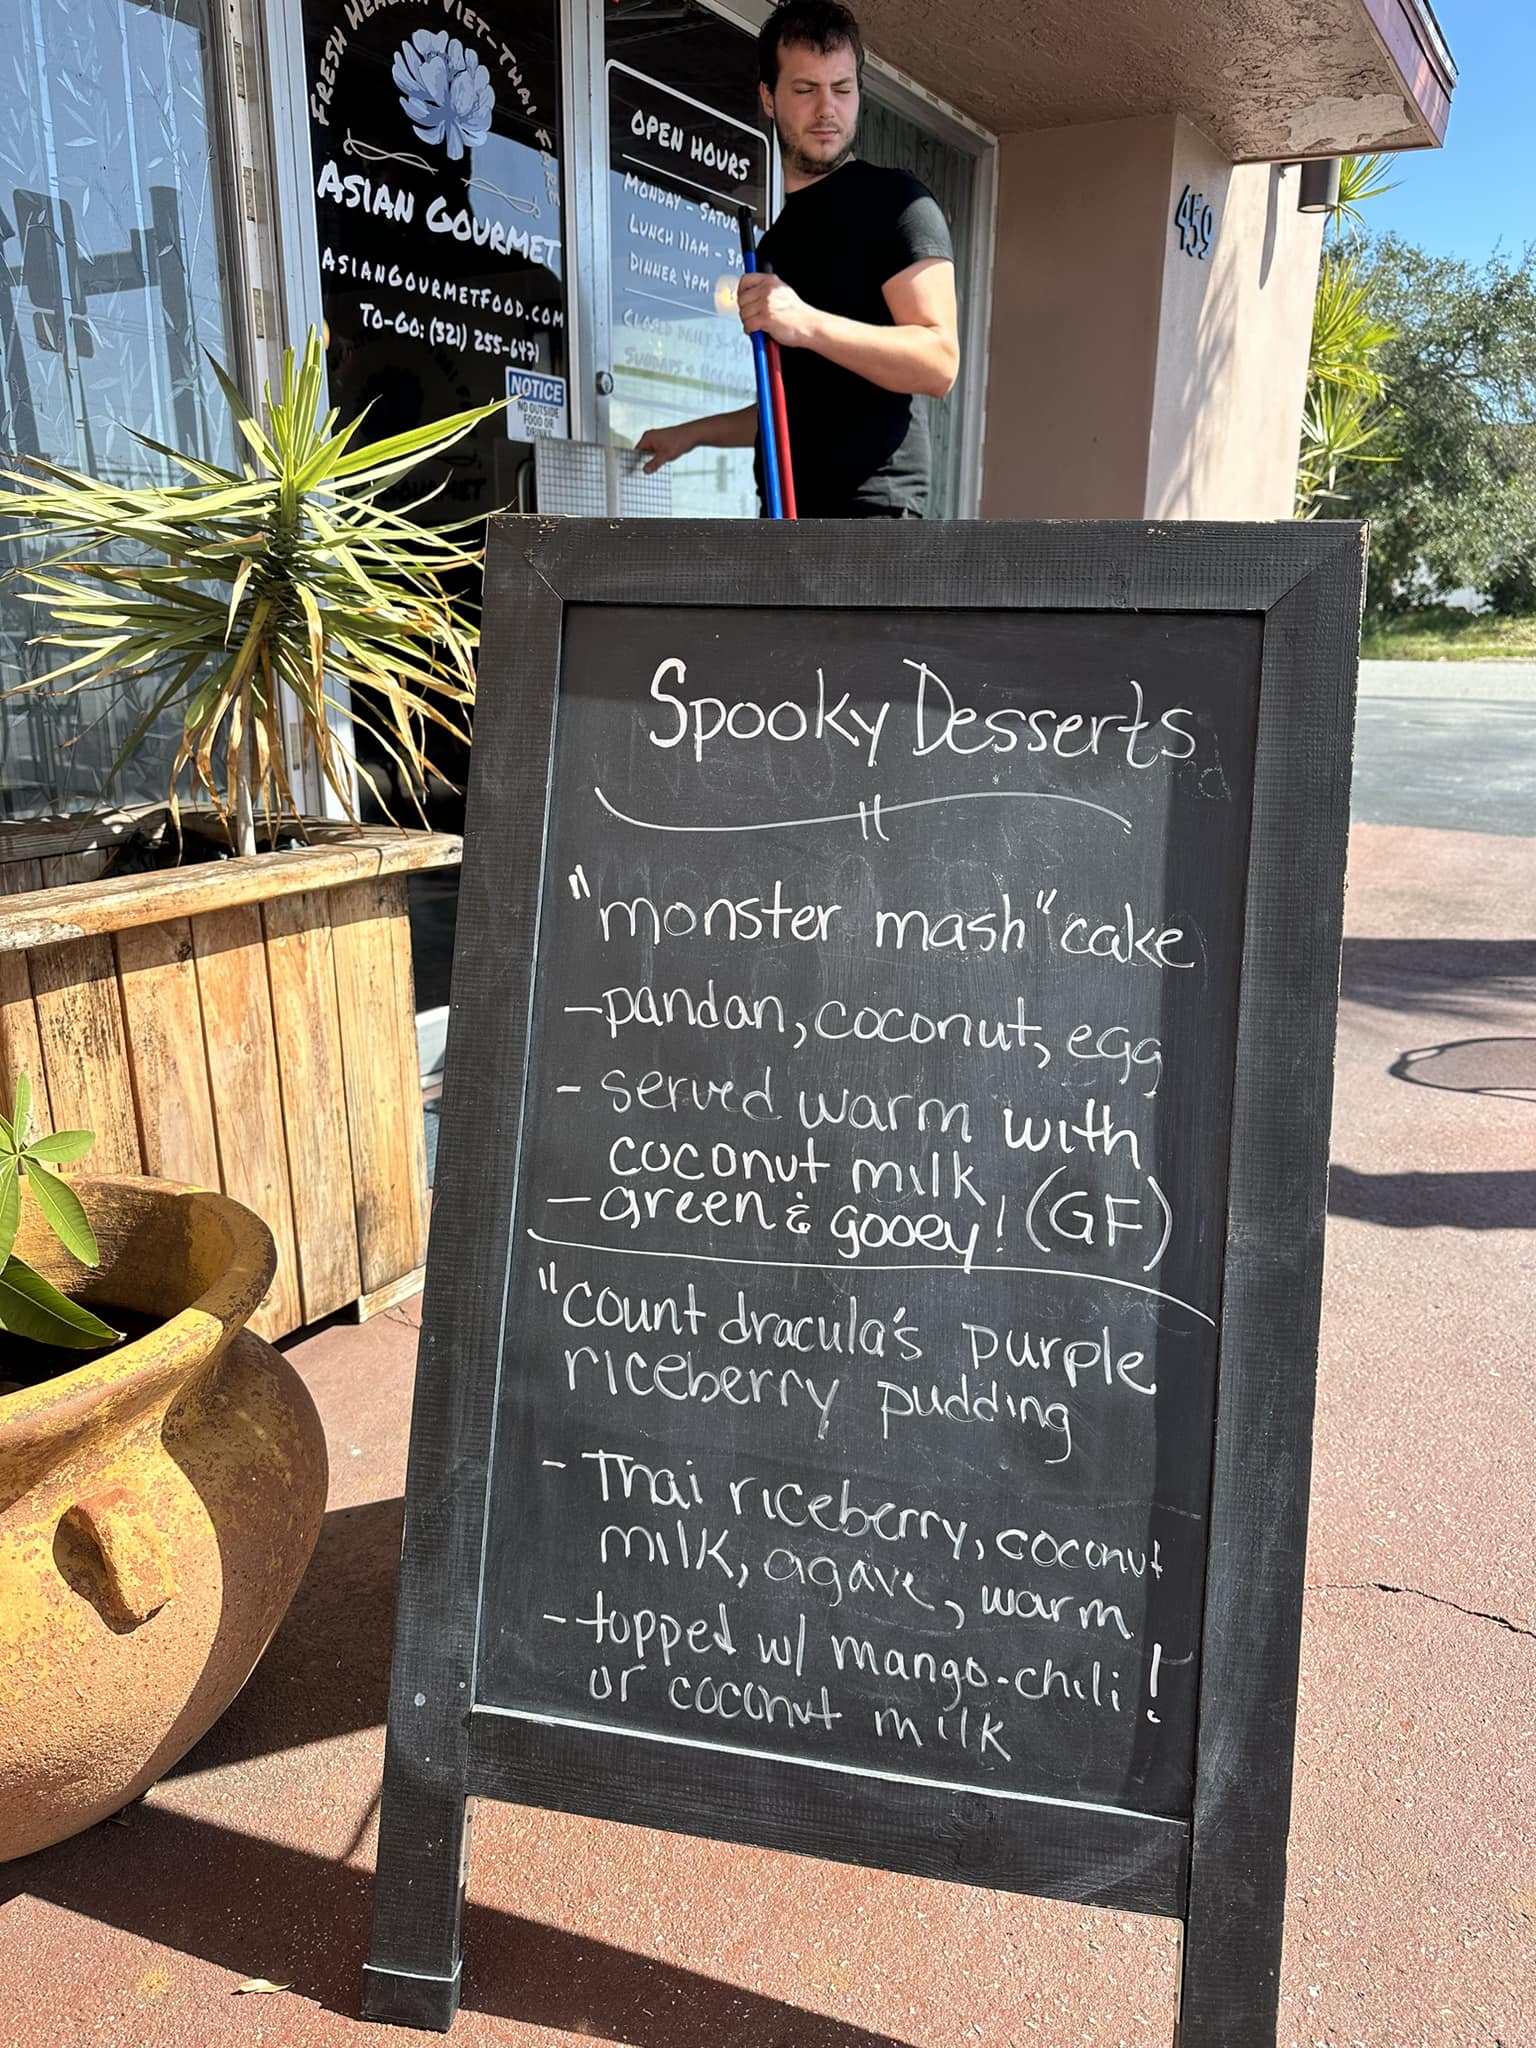 FRESH HEALTHY VIET-THAI FARE
ASIAN GOURMET
ASIANGOURMETFOOD.COM
TO-GO: (321) 255-6471
NOTICE
NO OUTSIDE
FOOD OR
OPEN HOURS
MONDAY - SATUR
LUNCH 11AM - 3P
DINNER 4PM
CLOSED DAILY 3-4
SUNDAYS +
459
Spooky Desserts
"monster mash" cake
- pandan, coconut, egg
- served warm with
coconut milk
- green & gooey! (GF)
"count dracula's purple
riceberry pudding
- Thai riceberry, coconut
milk, agave, warm
- topped w/ mango-chili!
or coconut milk